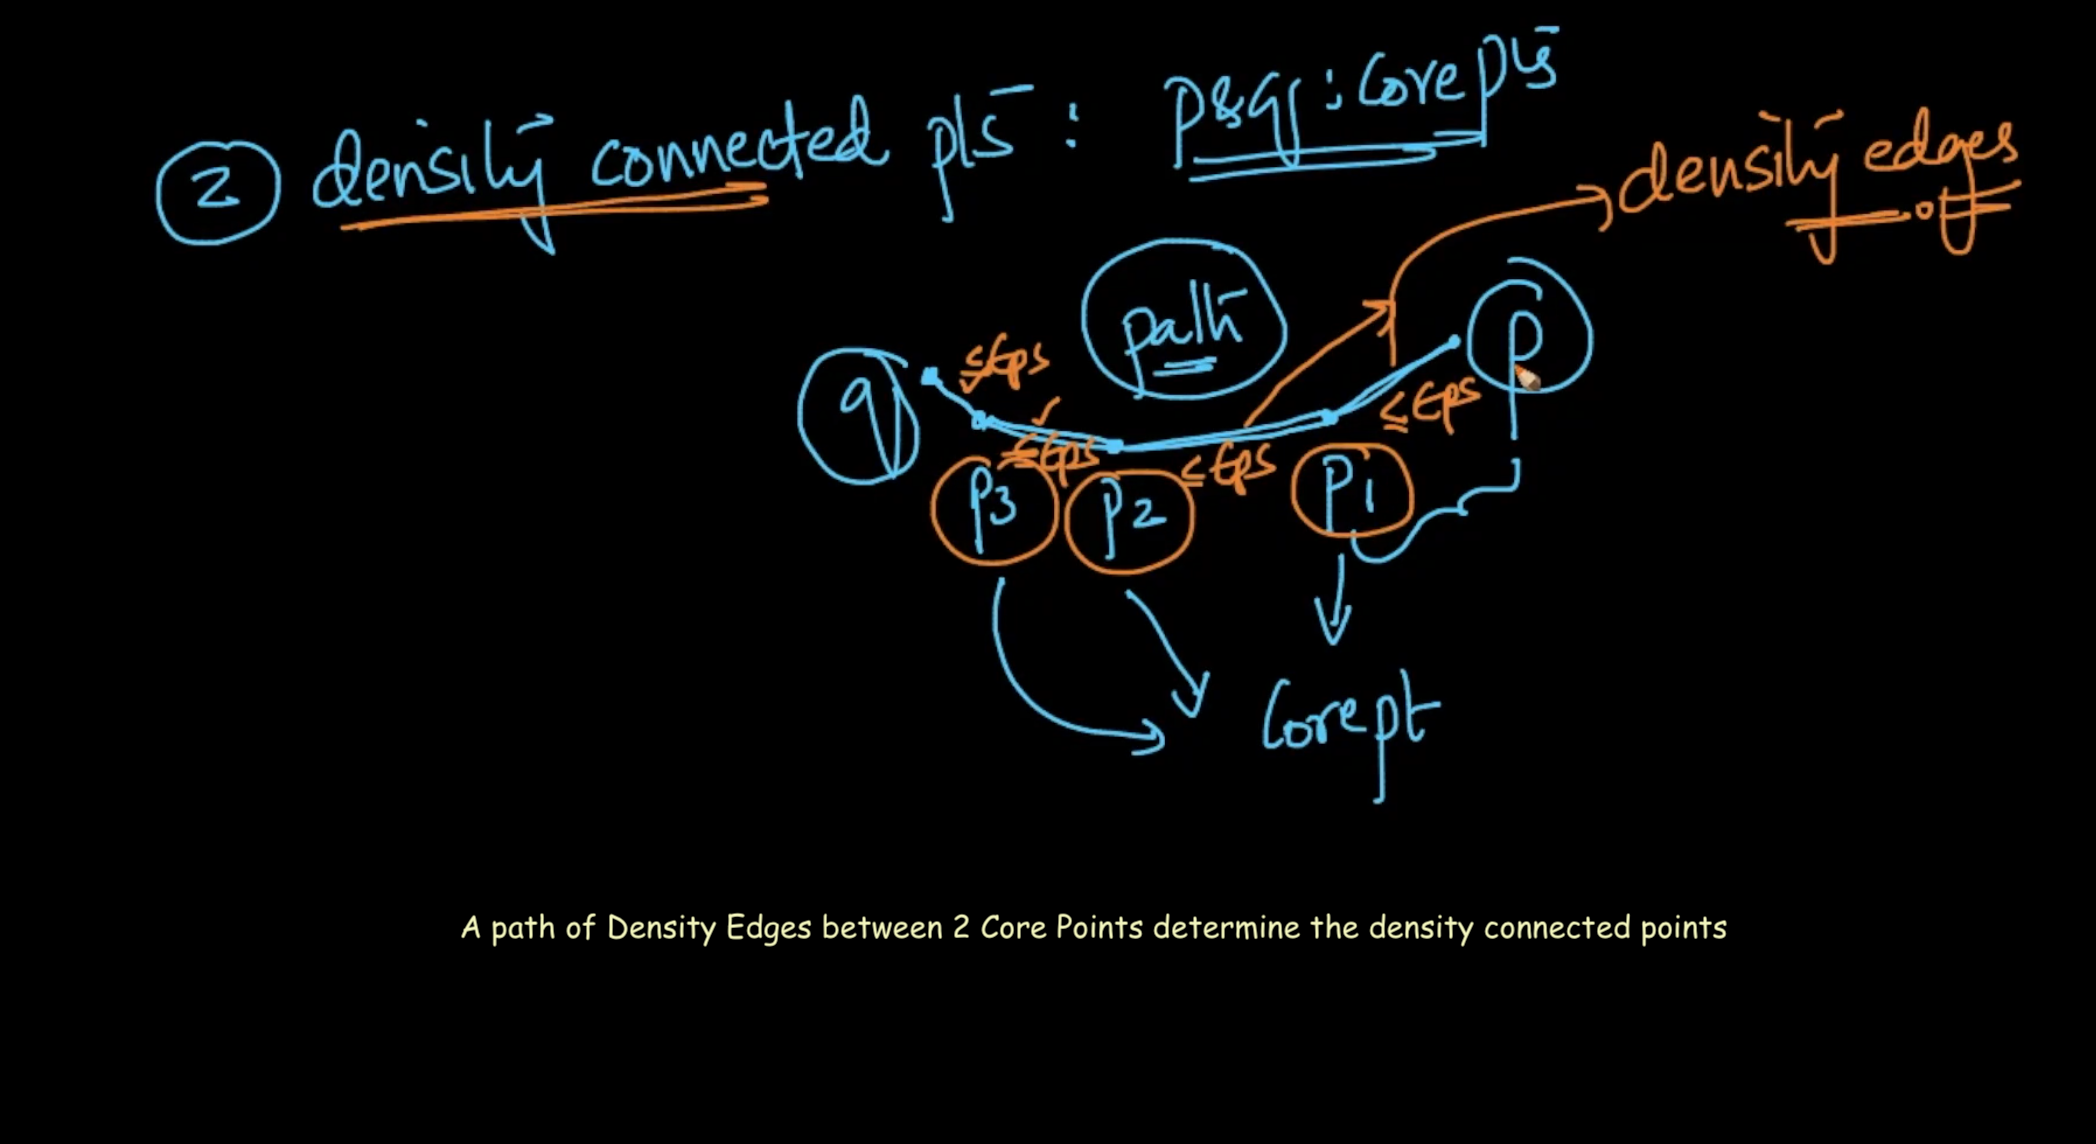 2 density connected pts : p & q : Core pts
density edges
path
p
q
≤ Eps
≤ Eps
≤ Eps
≤ Eps
p3 p2 p1
Core pt
A path of Density Edges between 2 Core Points determine the density connected points